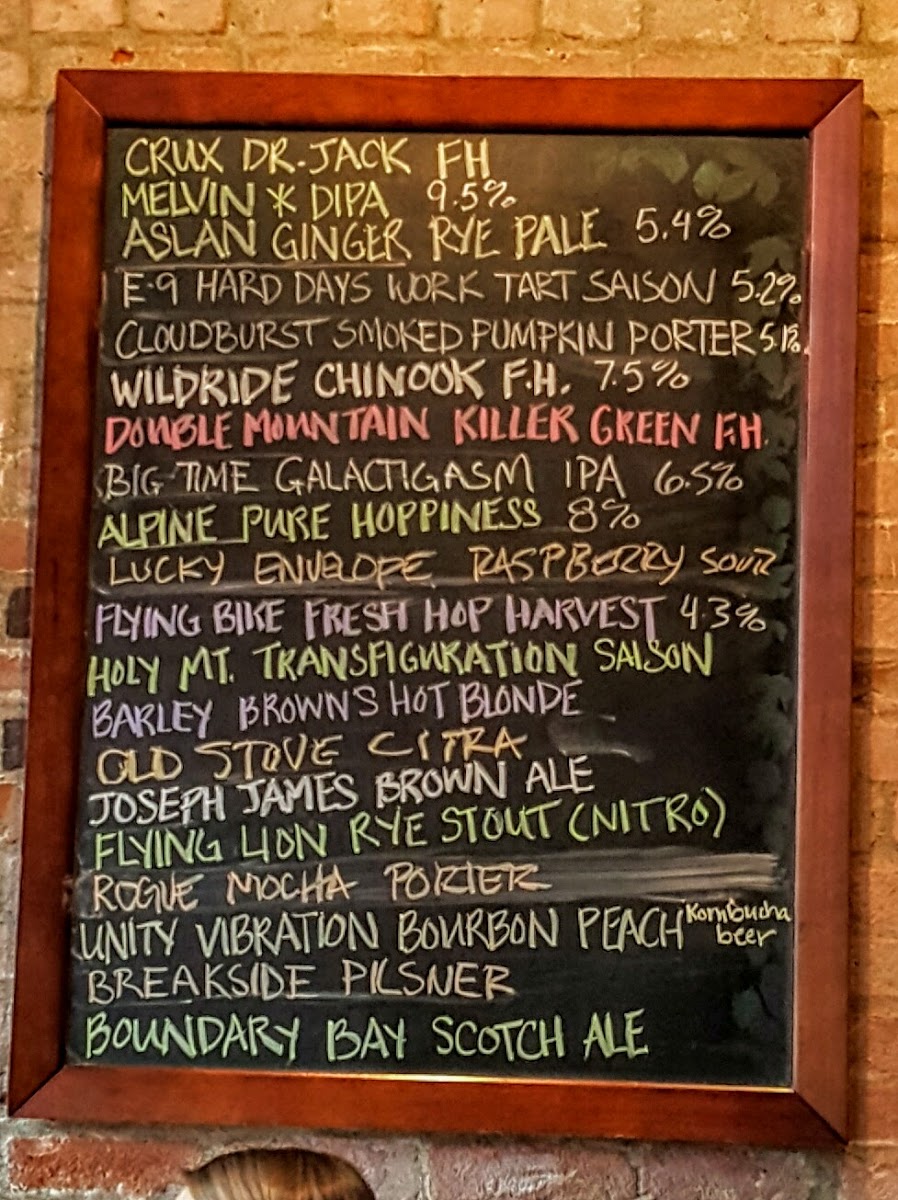 CRUX DR. JACK FH
MELVIN * DIPA 9.5%
ASLAN GINGER RYE PALE 5.4%
E-9 HARD DAYS WORK TART SAISON 5.2%
CLOUDBURST SMOKED PUMPKIN PORTER 5.1%
WILDRIDE CHINOOK F.H. 7.5%
DOUBLE MOUNTAIN KILLER GREEN F.H.
BIG TIME GALACTIGASM IPA 6.5%
ALPINE PURE HOPPINESS 8%
LUCKY ENVELOPE RASPBERRY SOUR
FLYING BIKE FRESH HOP HARVEST 4.3%
HOLY MT. TRANSFIGURATION SAISON
BARLEY BROWNS HOT BLONDE
OLD STOVE CITRA
JOSEPH JAMES BROWN ALE
FLYING LION RYE STOUT (NITRO)
ROGUE MOCHA PORTER
UNITY VIBRATION BOURBON PEACH Kombucha beer
BREAKSIDE PILSNER
BOUNDARY BAY SCOTCH ALE